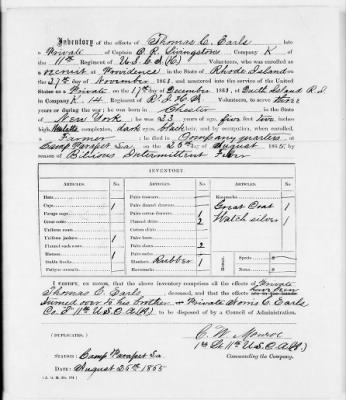 Inventory of the effects of Thomas C. Earls late
a Private of Captain Livingstons Company K of
the 11th Regiment of U.S.C.A. (H) Volunteers, who was enrolled as
a recruit at Providence in the State of Rhode Island on the
27th day of November 1863, and mustered into the service of the United
States as a Private on the 17th day of December 1863, at Dutch Island R.I.
in Company K 14 Regiment R.I.H.A. Volunteers, to serve three
years or during the war; he was born in Chester in the State
of New York; he was 23 years of age, five feet two inches
high, Mulatto complexion, dark eyes, black hair, and by occupation, when enrolled,
a Farmer; he died in Company quarters, at
Camp Parapet La. on the 25th day of August 1865, by
reason of Bilious Intermittent Fever
INVENTORY.
ARTICLES. No. ARTICLES. No. ARTICLES. No.
Hats,
Caps, 1
Forage caps,
Great coats,
Uniform coats,
Uniform jackets, 1
Flannel sack coats,
Blouses, 1
Stable frocks,
Fatigue overalls,
Pairs trowsers,
Pairs flannel drawers,
Pairs cotton drawers, 1
Flannel shirts, 2
Cotton shirts,
Pairs boots,
Pairs shoes,
Pairs socks, 2
Blankets, Rubber 1
Haversacks,
Knapsacks,
Great Coat 1
Watch silver 1
Money. Specie, $
Notes, $
I CERTIFY, ON HONOR, that the above inventory comprises all the effects of Private
Thomas C. Earls deceased, and that the effects have been
turned over to his brother Private Morris E. Earls
Co. F 11th U.S.C.A.(H), to be disposed of by a Council of Administration.
(DUPLICATES.)
C. W. Monroe
1st Lt 11th U.S.C.A(H).
Commanding the Company.
STATION: Camp Parapet La.
DATE: August 26th 1865